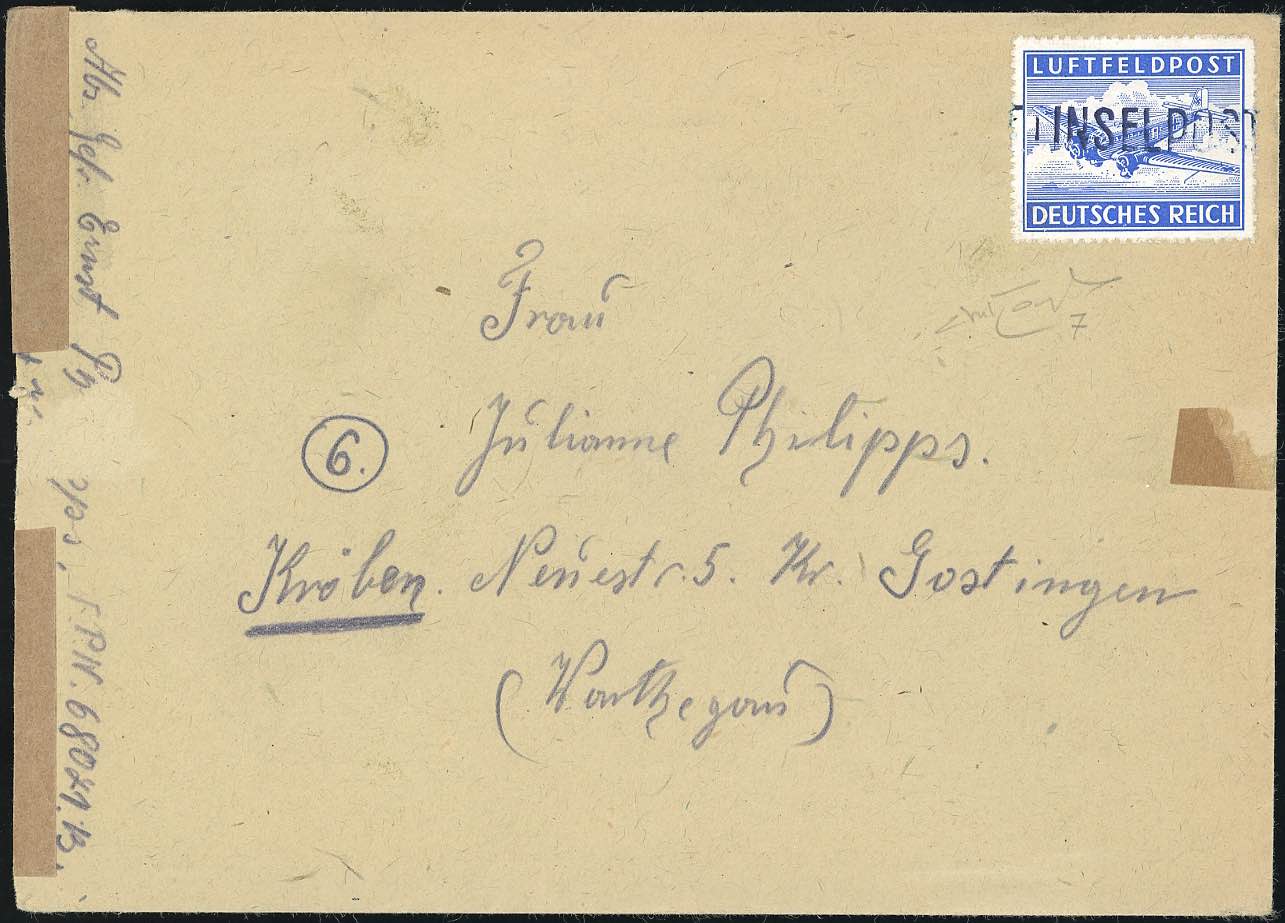 LUFTFELDPOST
INSELPOST
DEUTSCHES REICH
Frau
Julianne Philipps.
6.
Kröben. Neuestr. 5. Kr. Gostingen
(Warthegau)
Abs. Gefr. Ernst Ph
ipps, F.P.N. 68021.B.
7